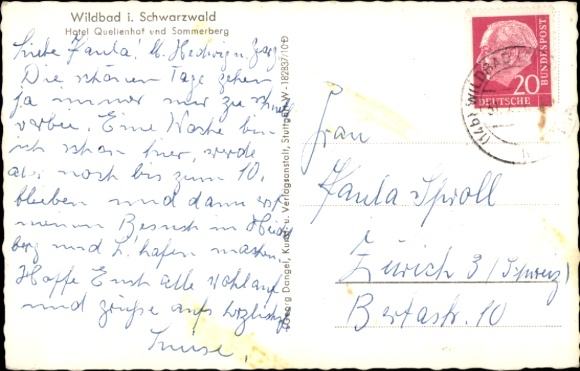 Wildbad i. Schwarzwald
Hotel Quellenhof und Sommerberg
Liebe Paula, Hedwig u.
Die schönen Tage gehen
ja immer nur zu schnell
vorbei. Eine Woche bin
ich schon hier, werde
aber noch bis zum 10.
bleiben und dann
meinen Besuch in
berg und L'hafen machen.
Hoffe Euch alle wohlauf
und grüße aufs herzlichste
Luise.
Georg Dangel, Kunst- u. Verlagsanstalt, Stuttgart-W - 182837/10 D
20
DEUTSCHE
BUNDESPOST
(14b) WILDBAD
Frau
Paula Sproll
Zürich 3 (Schweiz)
Bertastr. 10